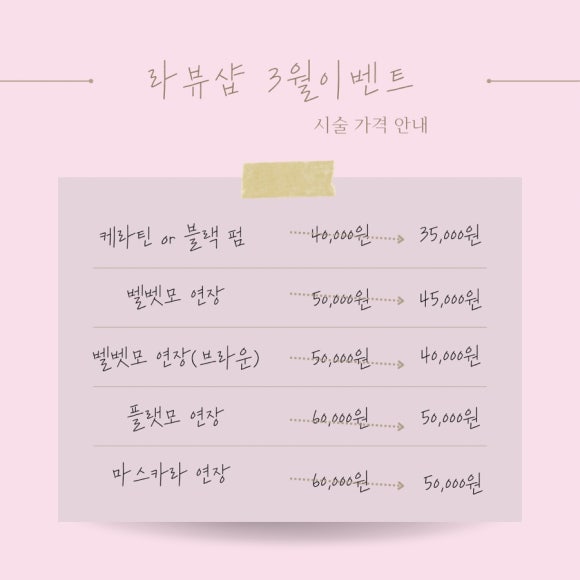 라뷰샵 3월이벤트
시술 가격 안내
케라틴 or 블랙 펌 40,000원 35,000원
벨벳모 연장 50,000원 45,000원
벨벳모 연장(브라운) 50,000원 40,000원
플랫모 연장 60,000원 50,000원
마스카라 연장 60,000원 50,000원